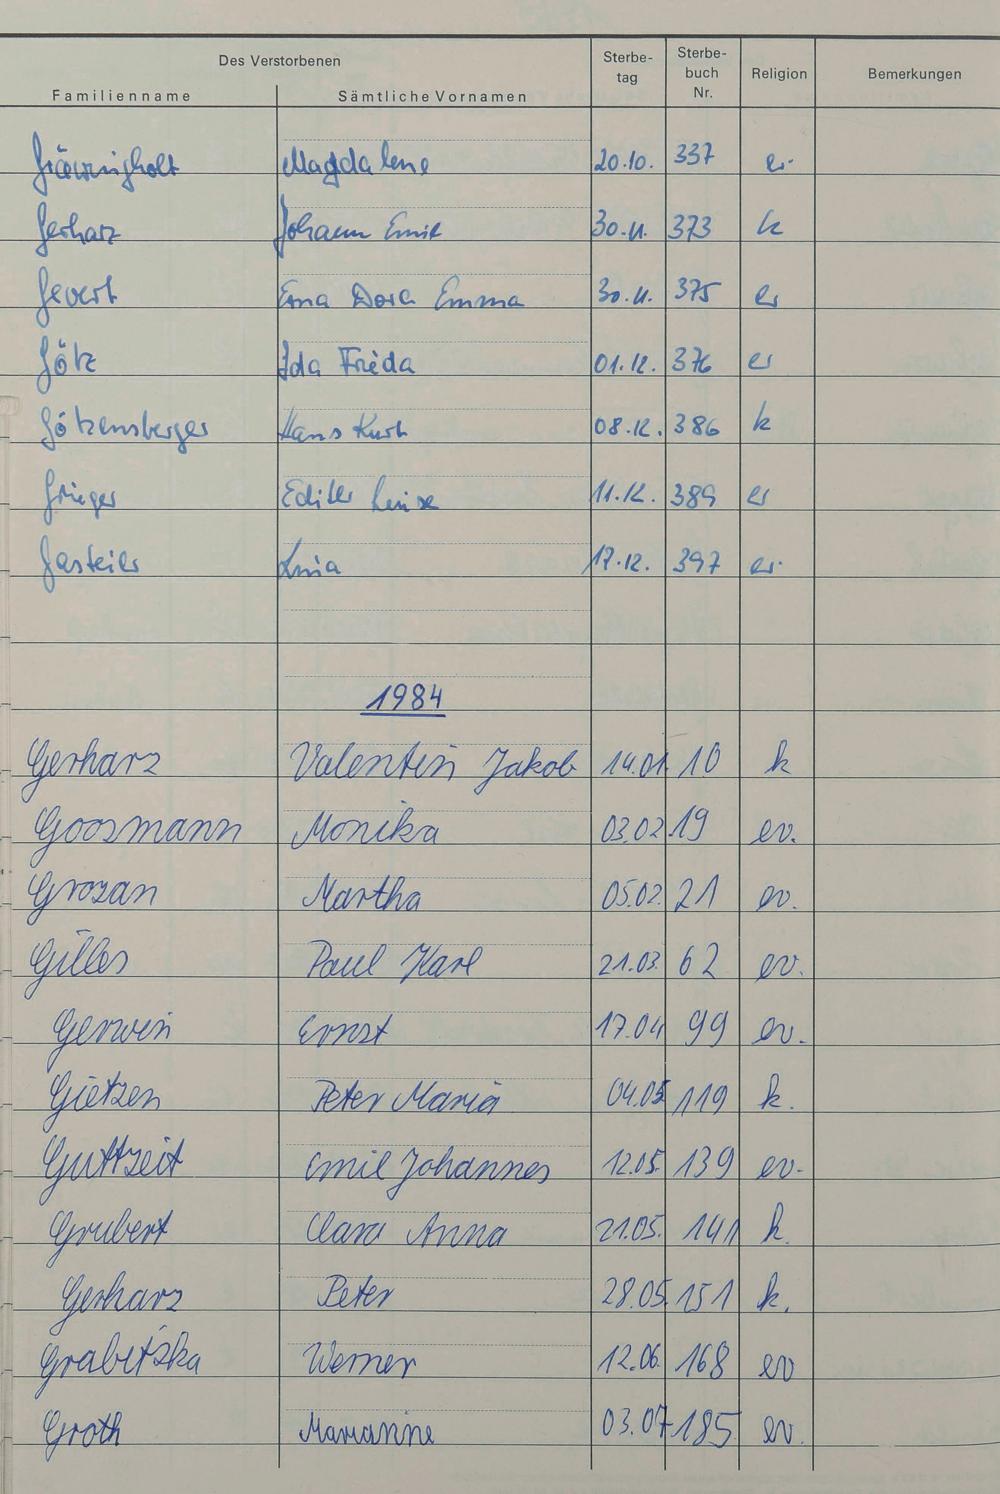 Des Verstorbenen Sterbe- Sterbe-
tag buch Religion Bemerkungen
Familienname Sämtliche Vornamen Nr.
Magdalene 20.10. 337 ev.
Gerharz Johann Emil 30.11. 373 k
Gevert Erna Dora Emma 30.11. 375 ev
Götz Ida Frieda 01.12. 376 ev
Götzensberger Hans Kurt 08.12. 386 k
Grieger Edith Luise 11.12. 389 ev
Gasteier 17.12. 397 ev.
1984
Gerharz Valentin Jakob 14.01. 10 k
Goosmann Monika 03.02 19 ev.
Grozan Martha 05.02. 21 ev.
Gilles Paul Karl 21.03. 62 ev.
Gerwin Ernst 17.04 99 ev.
Gietzen Peter Maria 04.05 119 k.
Guttzeit Emil Johannes 12.05. 139 ev.
Grubert Clara Anna 21.05. 141 k.
Gerharz Peter 28.05. 151 k.
Grabetzka Werner 12.06. 168 ev
Groth Marianne 03.07 185 ev.